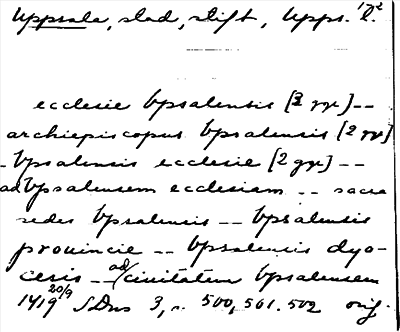 Uppsala, stad, stift, Upps. l.
ecclesie Vpsalensis [3 ggr] --
archiepiscopus Vpsalensis [2 ggr]
- Vpsalensis ecclesie [2 ggr] --
ad Vpsalensem ecclesiam -- sacra
sedes Vpsalensis -- Vpsalensis
prouincie -- Vpsalensis dyo-
cesis -- ad civitatem Vpsalensem
1419 20/9 SDns 3, s. 500, 501. 502 orig.